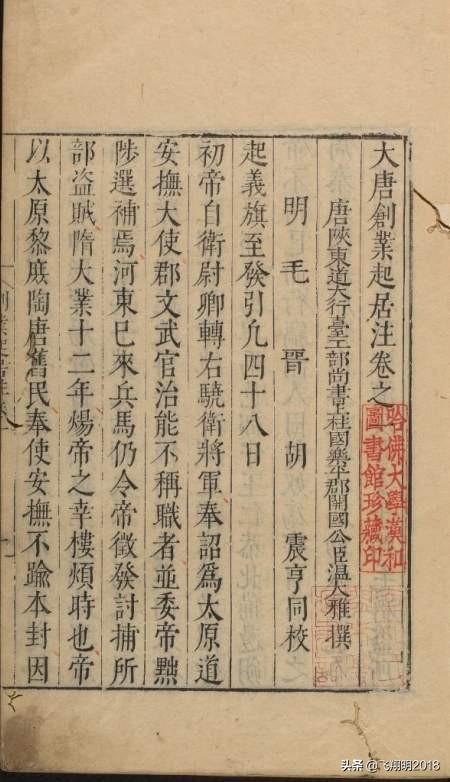 大唐創業起居注卷之一
唐陝東道大行臺工部尚書上柱國樂平郡開國公臣溫大雅撰
明毛晉胡震亨同校
起義旗至發引凢四十八日
初帝自衛尉卿轉右驍衛將軍奉詔為太原道
安撫大使郡文武官治能不稱職者並委帝黜
陟選補焉河東已來兵馬仍令帝徵發討捕所
部盜賊隋大業十二年煬帝之幸樓煩時也帝
以太原黎庶陶唐舊民奉使安撫不踰本封因
哈佛大學漢和
圖書館珍藏印
头条 @飞翔明2018